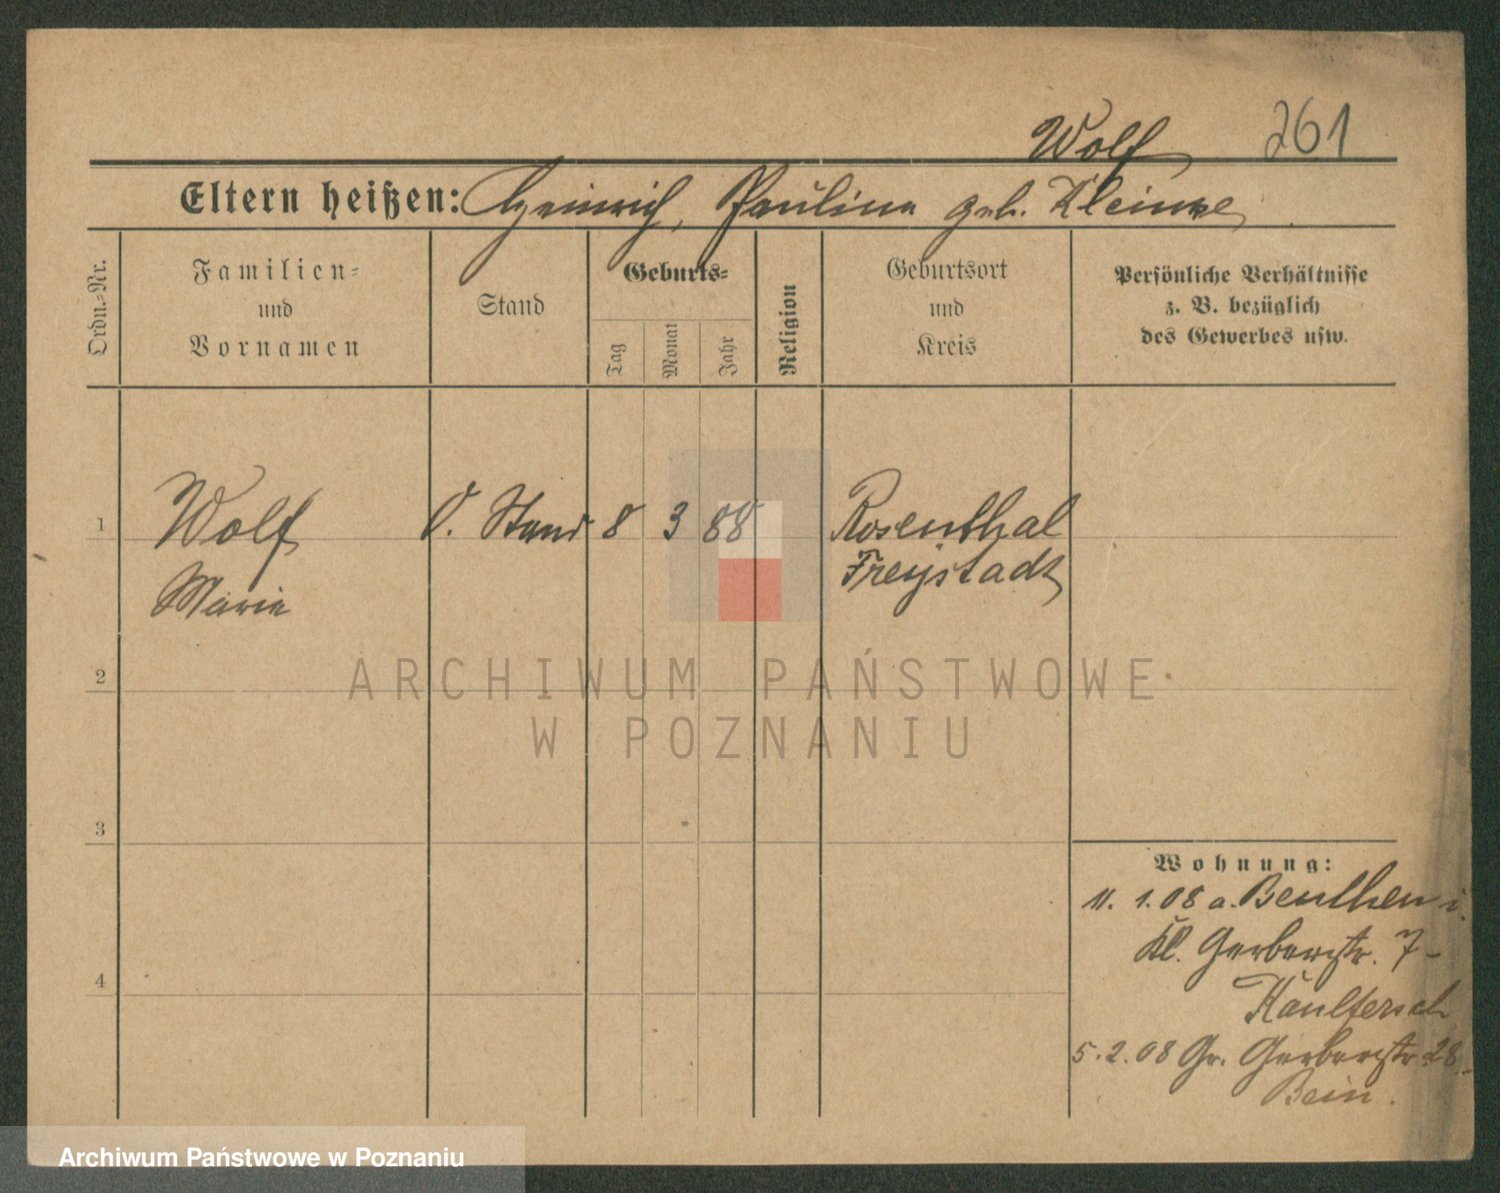 Wolf 261
Eltern heißen: Heinrich, Pauline geb. Kleinke
Ordn.=Nr.
Familien=
und
Vornamen
Stand
Geburts=
Tag
Monat
Jahr
Religion
Geburtsort
und
Kreis
Persönliche Verhältnisse
z. B. bezüglich
des Gewerbes usw.
1 Wolf O. Stand 8 3 88 Rosenthal
Marie Freystadt
2
3
4
ARCHIWUM PAŃSTWOWE
W POZNANIU
Wohnung:
11. 1. 08 a. Beuthen i.
Kl. Gerberstr. 7-
5. 2. 08 Gr. Gerberstr. 28
Bein.
Archiwum Państwowe w Poznaniu